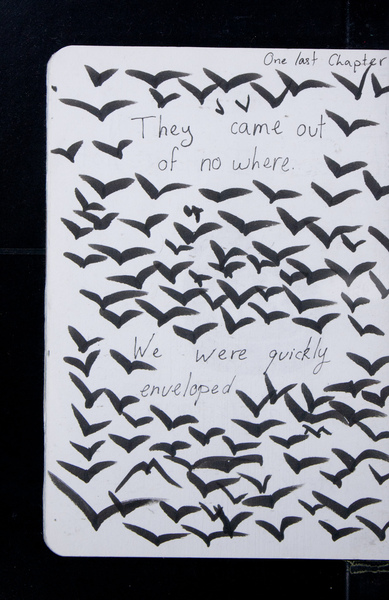 One last Chapter
They came out
of no where.
We were quickly
enveloped